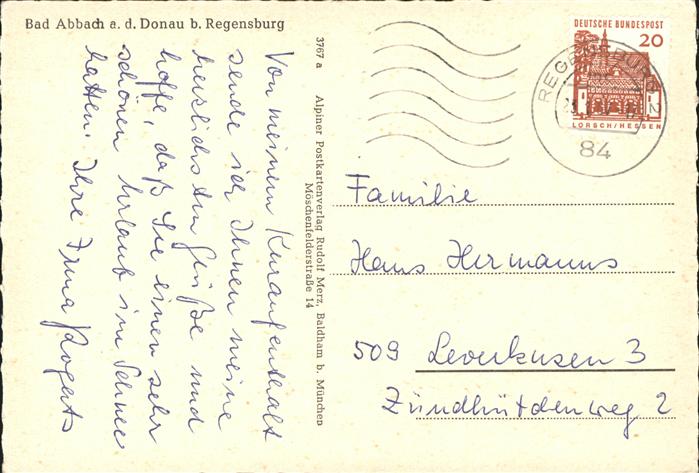 Bad Abbach a. d. Donau b. Regensburg
Von meinem Kuraufenthalt
sende ich Ihnen meine
herzlichsten Grüße und
hoffe, daß Sie einen sehr
schönen Urlaub im Schnee
hatten. Ihre Irma
3767 a Alpiner Postkartenverlag Rudolf Merz, Baldham b. München
Möschenfelderstraße 14
DEUTSCHE BUNDESPOST
20
LORSCH/HESSEN
REGENSBURG 2
84
Familie
Hans Hermanns
509 Leverkusen 3
Zündhütchenweg 2